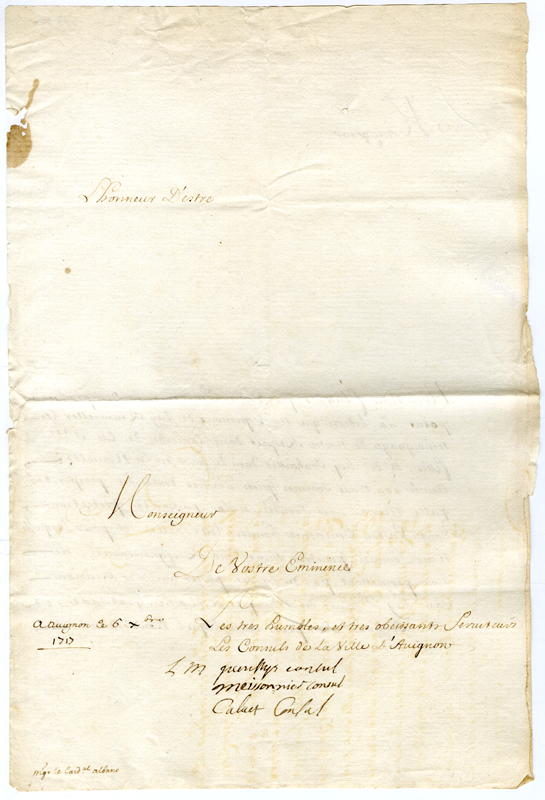 L'honneur D'estre
Monseigneur
De Vostre Eminence
Les tres humbles, et tres obeissants Seruiteurs
Les Consuls de la Ville d'Auignon
A auignon le 6 xbre
1717
consul
meissonnier consul
Calvet Consul
mgr le Card.al albano